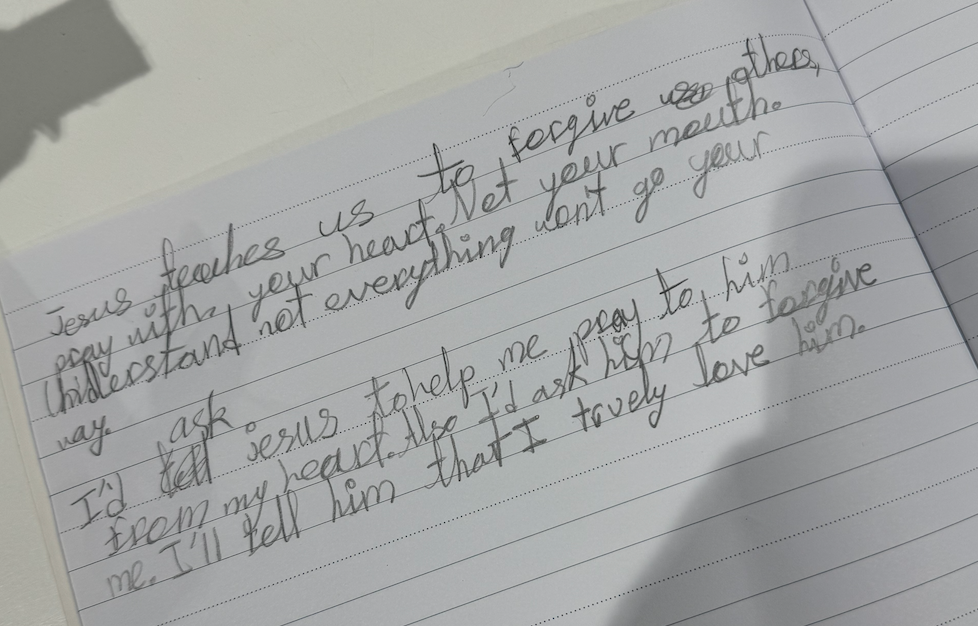 Jesus teaches us to forgive others,
pray with, your heart. Not your mouth.
Understand not everything won't go your
way.
ask
I'd tell Jesus to help me pray to him
from my heart. Also I'd ask him to forgive
me. I'll tell him that I truely love him.